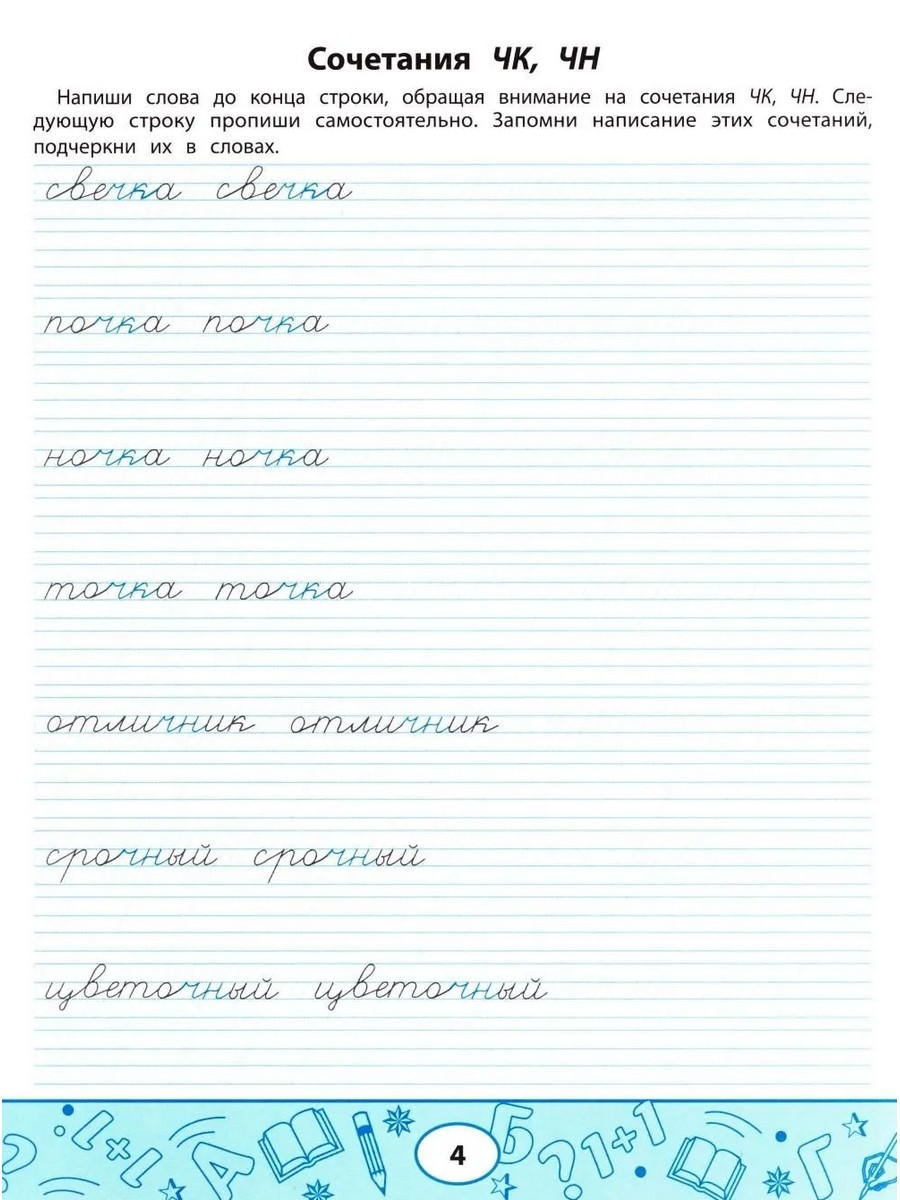 Сочетания ЧК, ЧН
Напиши слова до конца строки, обращая внимание на сочетания ЧК, ЧН. Сле-
дующую строку пропиши самостоятельно. Запомни написание этих сочетаний,
подчеркни их в словах.
свечка свечка
почка почка
ночка ночка
точка точка
отличник отличник
срочный срочный
цветочный цветочный
1+1 А Б ?1+1 Г
4